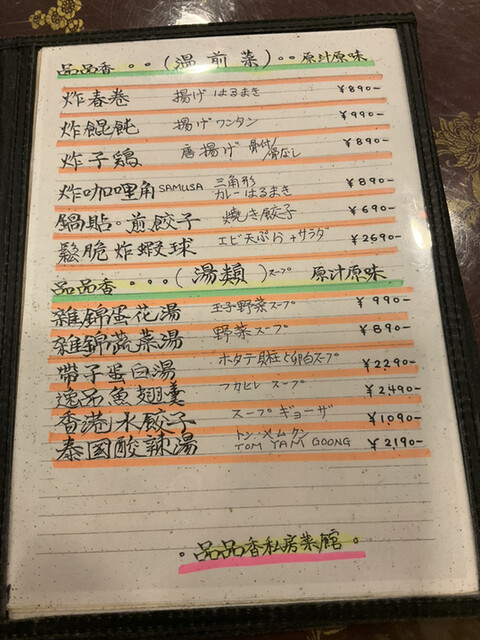 品品香 。。(湯前菜)。。原汁原味
炸春卷 揚げはるまき ¥890-
炸餛飩 揚げワンタン ¥990-
炸子鶏 唐揚げ 骨付/骨なし ¥890-
炸咖哩角 SAMUSA 三角形 カレーはるまき ¥890-
鍋貼。煎餃子 焼き餃子 ¥690-
鬆脆炸蝦球 エビ天ぷら+サラダ ¥2690-
品品香 。。。(湯類)スープ 原汁原味
雑錦蛋花湯 玉子野菜スープ ¥990-
雑錦蔬菜湯 野菜スープ ¥890-
帶子蛋白湯 ホタテ貝柱と卵白スープ ¥2290-
魚翅羹 フカヒレ スープ ¥2,490-
香港水餃子 スープギョーザ ¥1,090-
泰國酸辣湯 トン・ヤムクン TOM YAM GOONG ¥2,190-
。品品香私房菜館。